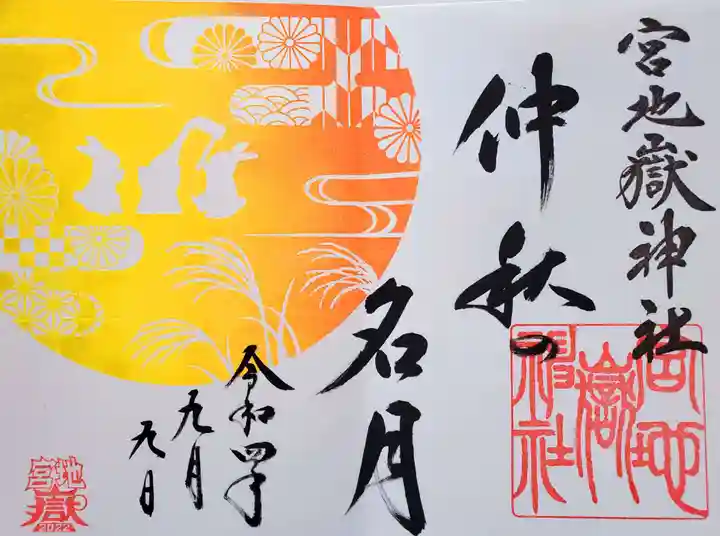 宮地嶽神社
仲秋の
名月
令和四年
九月
九日
宮地
嶽
神社
宮地
嶽
2022